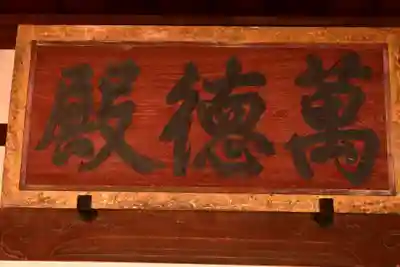 萬德殿